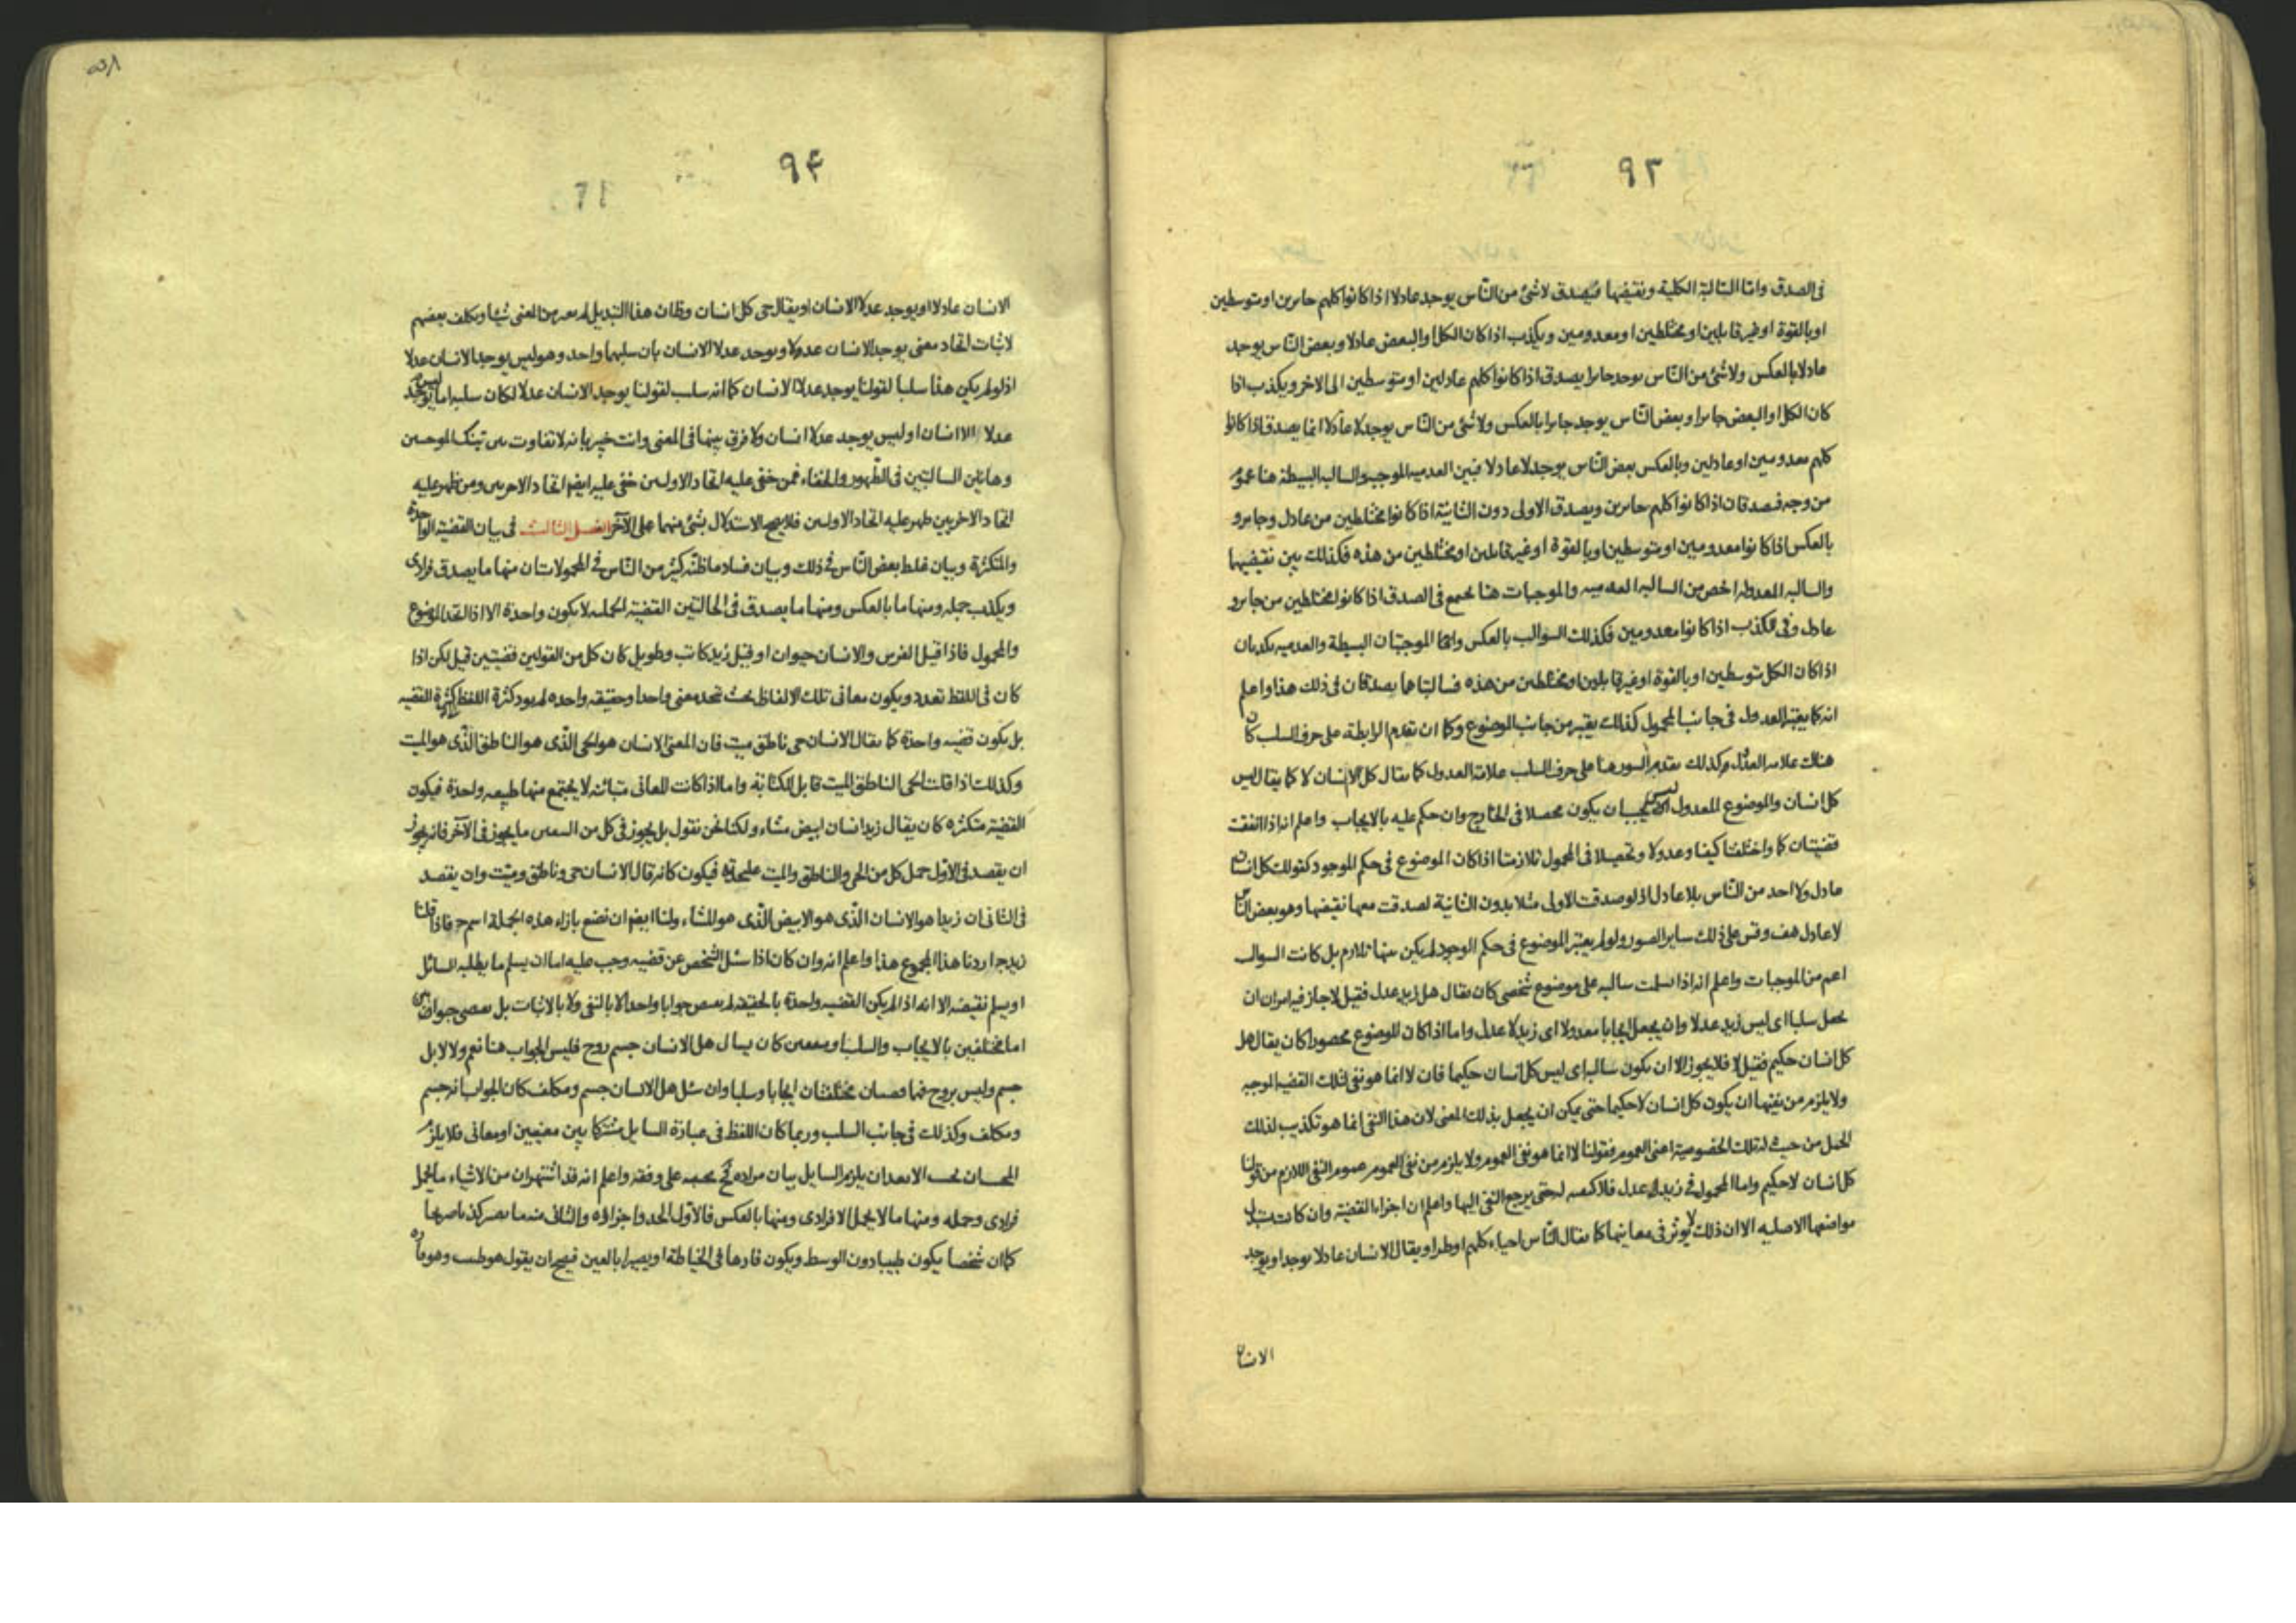 ٩٣
فى الصدق واما السالبة الكلية ونقيضها فيصدق لا شئ من الناس يوجد عادلا اذا كانوا كلهم جايرين او متوسطين
او بالقوة او غير قابلين او مختلطين او معدومين ويكذب اذا كان الكل او البعض عادلا وبعض الناس يوجد
عادلا بالعكس ولا شئ من الناس يوجد جايرا يصدق اذا كانوا كلهم عادلين او متوسطين الى الاخر ويكذب اذا
كان الكل او البعض جايرا وبعض الناس يوجد جايرا بالعكس ولا شئ من الناس يوجد لا عادلا انما يصدق اذا كانوا
كلهم معدومين او عادلين وبالعكس بعض الناس يوجد لا عادلا فبين العدمية الموجبة والسالبة البسيطة هنا عموم
من وجه فيصدقان اذا كانوا كلهم جايرين ويصدق الاولى دون الثانية اذا كانوا مختلطين من عادل وجاير و
بالعكس اذا كانوا معدومين او متوسطين او بالقوة او غير قابلين او مختلطين من هذه فكذلك بين نقيضيهما
والسالبة المعدولة اخص من السالبة العدمية والموجبات هنا تجتمع فى الصدق اذا كانوا مختلطين من جاير و
عادل وفى الكذب اذا كانوا معدومين فكذلك السوالب بالعكس واما الموجبتان البسيطة والعدمية يكذبان
اذا كان الكل متوسطين او بالقوة او غير قابلين او مختلطين من هذه فسالبتاهما يصدقان فى ذلك هذا واعلم
انه كما يعتبر العدول فى جانب المحمول كذلك يعتبر من جانب الموضوع وكما ان تقديم الرابطة على حرف السلب كان
هناك علامة العدول وكذلك تقديم السور هنا على حرف السلب علامة العدول كما يقال كل لا انسان لا كما يقال ليس
كل انسان والموضوع المعدول يجب ان يكون محصلا فى الخارج وان حكم عليه بالايجاب واعلم انه اذا اتفقت
قضيتان كما واختلفتا كيفا وعدولا وتحصيلا فى المحمول تلازمتا اذا كان الموضوع فى حكم الموجود كقولك كل انسان
عادل ولا احد من الناس بلا عادل اذ لو صدقت الاولى مثلا بدون الثانية لصدقت معها نقيضها وهو بعض الناس
لا عادل هف وقس على ذلك ساير الصور ولو لم يعتبر الموضوع فى حكم الوجود لم يكن بينها تلازم بل كانت السوالب
اعم من الموجبات واعلم انه اذا سلمت سالبة على موضوع شخصى كان يقال هل زيد عدل فقيل لا جاز فيه امران ان
يجعل سلبا اى ليس زيد عدلا وان يجعل ايجابا معدولا اى زيد لا عدل واما اذا كان الموضوع محصورا كان يقال هل
كل انسان حكيم فقيل لا فلا يجوز الا ان يكون سالبة اى ليس كل انسان حكيما فان لا انما هو نفى لتلك القضية الموجبة
ولا يلزم من نفيها ان يكون كل انسان لا حكيما حتى يمكن ان يجعل بذلك المعنى لان هذا النفى انما هو تكذيب لذلك
الحمل من حيث له تلك الخصوصية اعنى العموم فقولنا لا انما هو نفى العموم ولا يلزم من نفى العموم عموم النفى اللازم من قولنا
كل انسان لا حكيم واما المحمول فى زيد عدل فلا كمية له حتى يرجع النفى اليها واعلم ان اجزاء القضية وان كانت تتبدل
مواضعها الاصلية الا ان ذلك لا يوثر فى معانيها كما يقال الناس احياء كلهم او طرا ويقال الانسان عادلا يوجد او يوجد
الانسان
٩٤
الانسان عادلا او يوجد عدلا الانسان او يقال حى كل انسان وظان هذا التبديل لم يغير من المعنى شيئا وتكلف بعضهم
لاثبات اتحاد معنى يوجد الانسان عدولا ويوجد عدلا الانسان بان سلبهما واحد وهو ليس يوجد الانسان عدلا
اذ لو لم يكن هذا سلبا لقولنا يوجد عدلا الانسان كما انه سلب لقولنا يوجد الانسان عدلا لكان سلبه اما ليس يوجد
عدلا الا انسان او ليس يوجد عدلا انسان ولا فرق بينهما فى المعنى وانت خبير بانه لا تفاوت بين تينك الموجبتين
وهاتين السالبتين فى الظهور والخفاء فمن خفى عليه اتحاد الاوليين خفى عليه ايضا اتحاد الاخريين ومن ظهر عليه
اتحاد الاخريين ظهر عليه اتحاد الاوليين فلا يصح الاستدلال بشئ منهما على الآخر الفصل الثالث فى بيان القضية الواحدة
والمتكثرة وبيان غلط بعض الناس فى ذلك وبيان فساد ما ظنه كثير من الناس فى المحمولات ان منها ما يصدق فرادى
ويكذب جملة ومنها ما بالعكس ومنها ما يصدق فى الحالتين القضية الحملية لا يكون واحدة الا اذا اتحد الموضوع
والمحمول فاذا قيل الفرس والانسان حيوان او قيل زيد كاتب وطويل كان كل من القولين قضيتين قيل لكن اذا
كان فى اللفظ تعدد ويكون معانى تلك الالفاظ بحيث تتحد معنى واحدا وحقيقة واحدة لم يود كثرة اللفظ كثرة القضية
بل يكون قضية واحدة كما يقال الانسان حى ناطق ميت فان المعنى الانسان هو الحى الذى هو الناطق الذى هو الميت
وكذلك اذا قلت الحى الناطق الميت قابل للكتابة واما اذا كانت المعانى متباينة لا يجتمع منها طبيعة واحدة فيكون
القضية متكثرة كان يقال زيد انسان ابيض مشاء ولكنا نحن نقول بل يجوز فى كل من المعنيين ما يجوز فى الآخر فانه يجوز
ان يقصد فى الاول حمل كل من الحى والناطق والميت عليحدة فيكون كانه قال الانسان حى وناطق وميت وان يقصد
فى الثانى ان زيدا هو الانسان الذى هو الابيض الذى هو المشاء ولنا ايضا ان نضع بازاء هذه الجملة اسم ج فاذا قلنا
زيد ج اردنا هذا المجموع هذا واعلم انه وان كان اذا سئل الشخص عن قضية وجب عليه اما ان يسلم ما يطلبه السائل
او يسلم نقيضه الا انه اذا لم يكن القضية واحدة بالحقيقة لم يقتض جوابا واحدا لا بالنفى ولا بالاثبات بل يقتضى جوابين
اما مختلفين بالايجاب والسلب او متفقين كان يسال هل الانسان جسم روح فليس الجواب هنا نعم ولا لا بل
جسم وليس بروح فهما قضيتان مختلفتان ايجابا وسلبا وان سئل هل الانسان جسم ومكلف كان الجواب انه جسم
ومكلف وكذلك فى جانب السلب وربما كان اللفظ فى عبارة السايل مشتركا بين معنيين او معانى فلا يلزم
المجيب ان يجيب الا بعد ان يلزم السايل بيان مراده ثم يجيبه على وفقه واعلم انه قد اشتهر ان من الاشياء ما يحمل
فرادى وجملة ومنها ما لا يحمل الا فرادى ومنها بالعكس فالاول الحد واجزاؤه والثانى
كما ان شخصا يكون طبيبا دون الوسط ويكون فارها فى الخياطة او بصيرا بالعين فيصح ان يقول هو طبيب وهو فاره